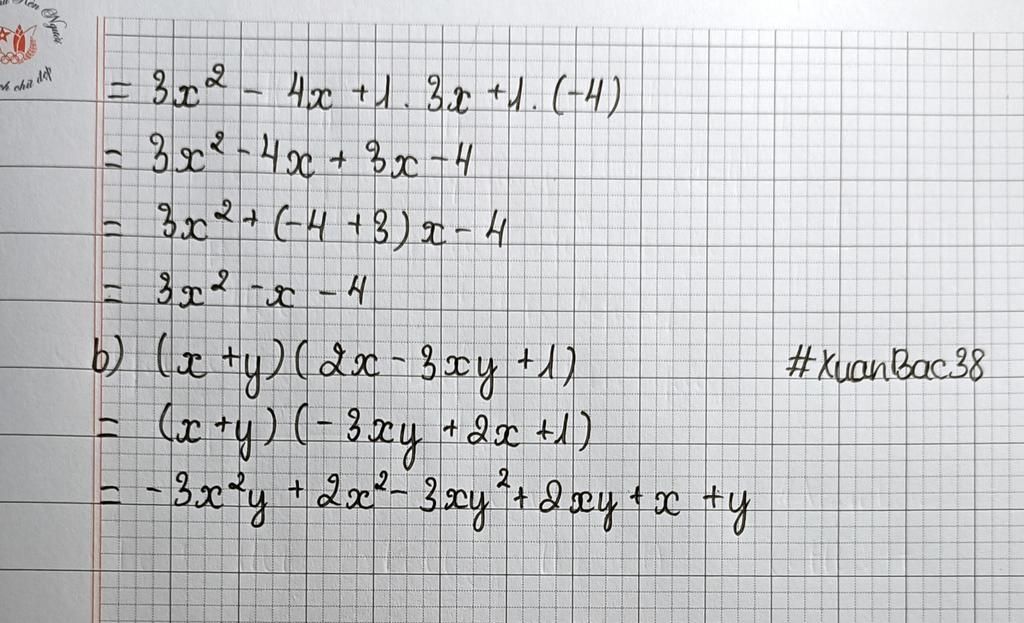 Nét chữ đẹp
= 3x² - 4x + 1 . 3x + 1 . (-4)
= 3x² - 4x + 3x - 4
= 3x² + (-4 + 3) x - 4
= 3x² - x - 4
b) (x + y) (2x - 3xy + 1) #XuanBac38
= (x + y) (-3xy + 2x + 1)
= -3x²y + 2x² - 3xy² + 2xy + x + y